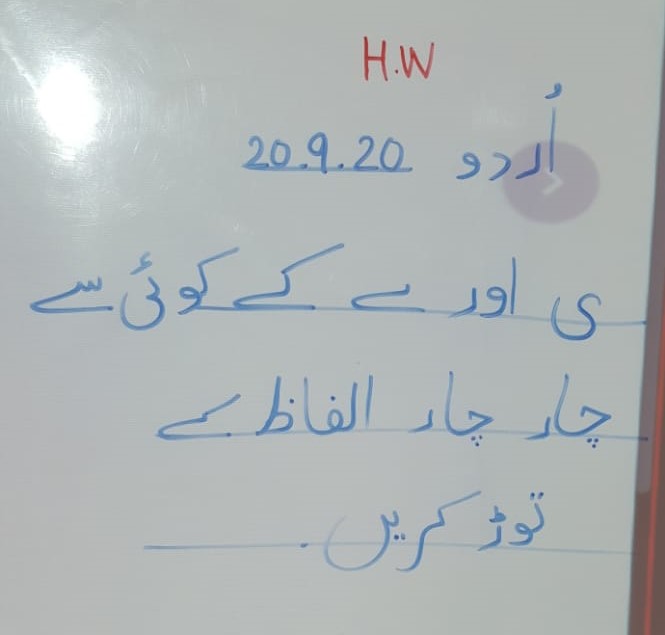 H.W
اُردو 20.9.20
ی اور ے کے کوئی سے
چار چار الفاظ کے
توڑ کریں.